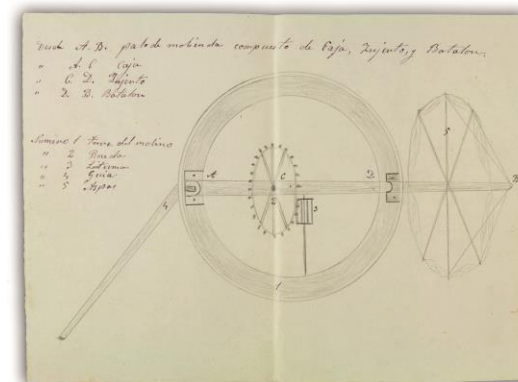 Desde A. B. palo de molienda compuesto de Caja, Injerto, y Botalon,
" A. C Caja
" C. D. Injerto
" D. B. Botalon
Número 1 Torre del molino
" 2 Rueda
" 3 Linterna
" 4 Guia
" 5 Aspas
A
C
D
B
1
2
3
4
5